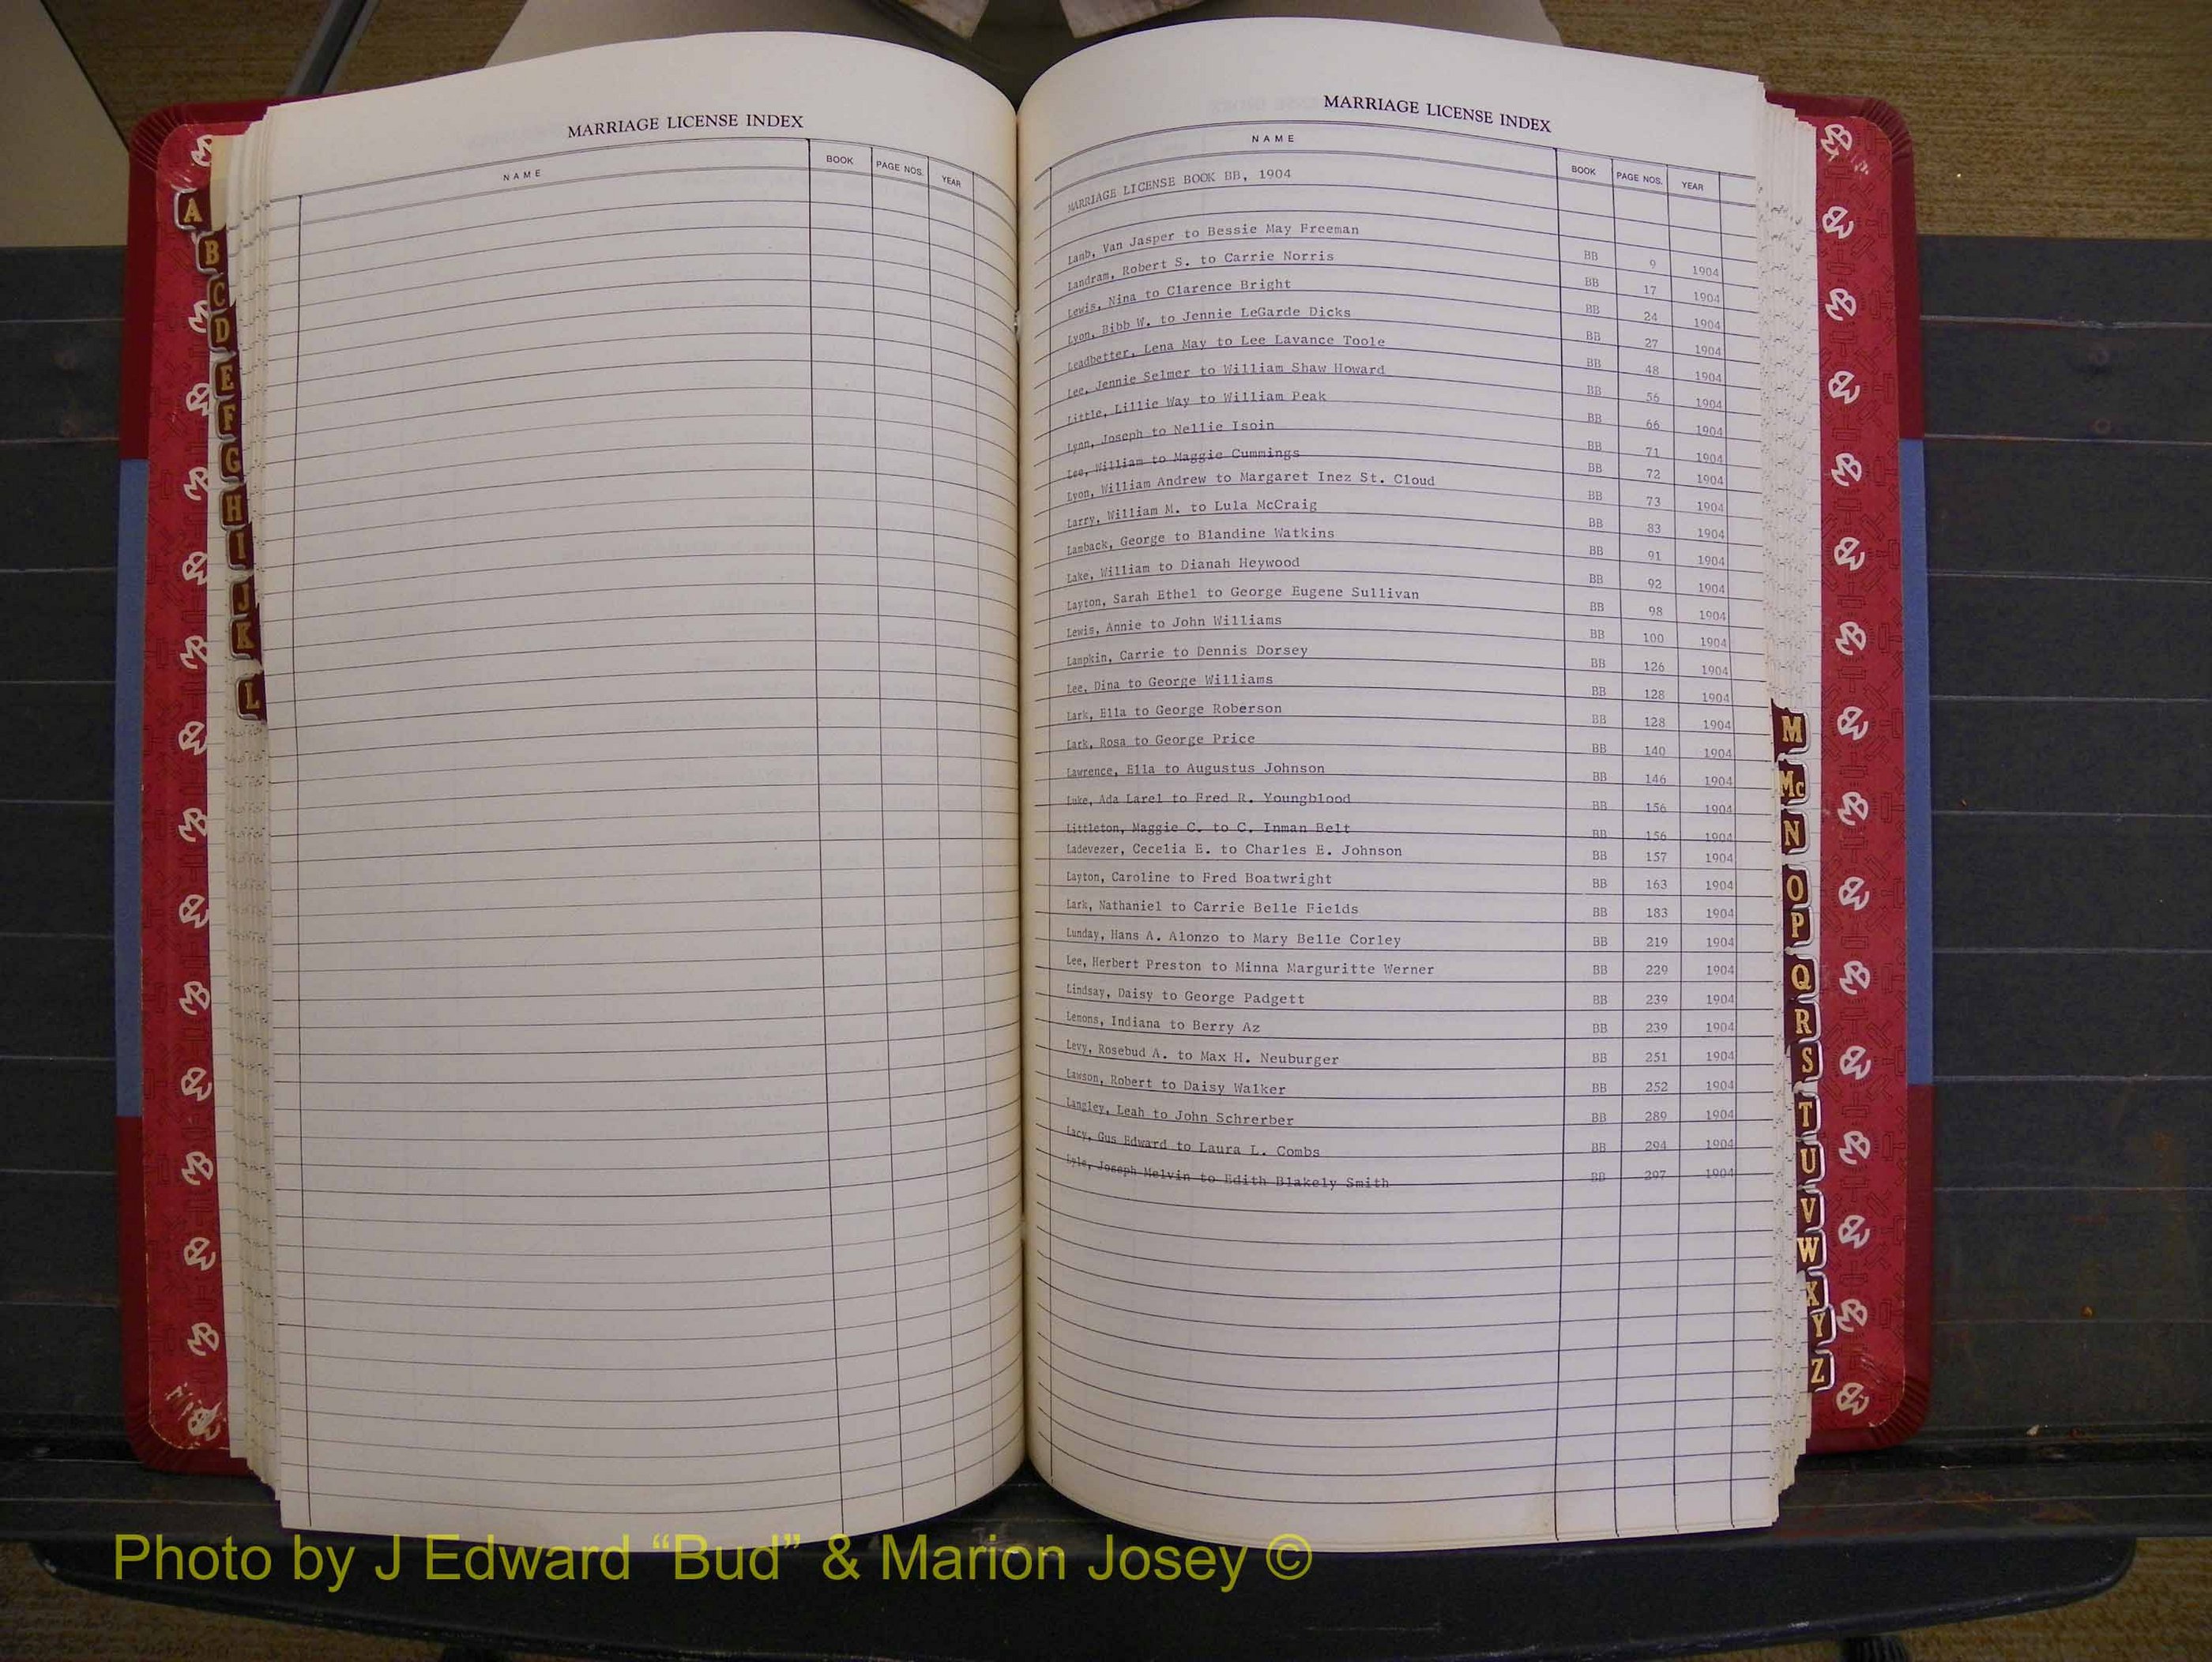 MARRIAGE LICENSE INDEX
NAME BOOK PAGE NOS. YEAR
A
B
C
D
E
F
G
H
I
J
K
L
MARRIAGE LICENSE INDEX
NAME BOOK PAGE NOS. YEAR
MARRIAGE LICENSE BOOK BB, 1904
Lamb, Van Jasper to Bessie May Freeman BB 9 1904
Landram, Robert S. to Carrie Norris BB 17 1904
Lewis, Nina to Clarence Bright BB 24 1904
Lyon, Bibb W. to Jennie LeGarde Dicks BB 27 1904
Leadbetter, Lena May to Lee Lavance Toole BB 48 1904
Lee, Jennie Selmer to William Shaw Howard BB 56 1904
Little, Lillie Way to William Peak BB 66 1904
Lynn, Joseph to Nellie Isoin BB 71 1904
Lee, William to Maggie Cummings BB 72 1904
Lyon, William Andrew to Margaret Inez St. Cloud BB 73 1904
Larry, William M. to Lula McCraig BB 83 1904
Lamback, George to Blandine Watkins BB 91 1904
Lake, William to Dianah Heywood BB 92 1904
Layton, Sarah Ethel to George Eugene Sullivan BB 98 1904
Lewis, Annie to John Williams BB 100 1904
Lampkin, Carrie to Dennis Dorsey BB 126 1904
Lee, Dina to George Williams BB 128 1904
Lark, Ella to George Roberson BB 128 1904
Lark, Rosa to George Price BB 140 1904
Lawrence, Ella to Augustus Johnson BB 146 1904
Luke, Ada Larel to Fred R. Youngblood BB 156 1904
Littleton, Maggie C. to C. Inman Belt BB 156 1904
Ladevezer, Cecelia E. to Charles E. Johnson BB 157 1904
Layton, Caroline to Fred Boatwright BB 163 1904
Lark, Nathaniel to Carrie Belle Fields BB 183 1904
Lunday, Hans A. Alonzo to Mary Belle Corley BB 219 1904
Lee, Herbert Preston to Minna Marguritte Werner BB 229 1904
Lindsay, Daisy to George Padgett BB 239 1904
Lemons, Indiana to Berry Az BB 239 1904
Levy, Rosebud A. to Max H. Neuburger BB 251 1904
Lawson, Robert to Daisy Walker BB 252 1904
Langley, Leah to John Schrerber BB 289 1904
Lacy, Gus Edward to Laura L. Combs BB 294 1904
Lyle, Joseph Melvin to Edith Blakely Smith BB 297 1904
M
Mc
N
O
P
Q
R
S
T
U
V
W
X
Y
Z
Photo by J Edward “Bud” & Marion Josey ©